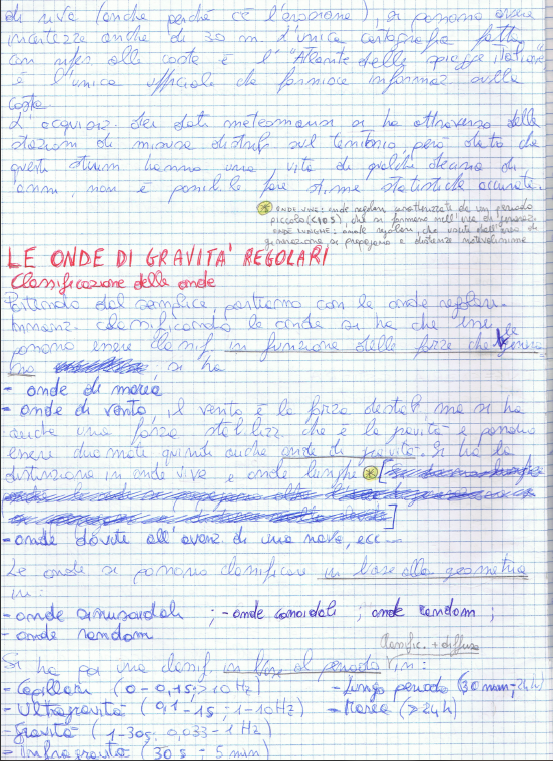 di rive (anche perché c'è l'erosione), si possono avere
incertezze anche di 30 m. L'unica cartografia fatta
con rifer. alle coste è l'"Atlante delle spiagge italiane"
è l'unica ufficiale che fornisce informaz. sulla
costa.
L'acquisiz. dei dati meteomarini si ha attraverso delle
stazioni di misura distrib. sul territorio, però dato che
questi strum. hanno una vita di qualche decina di
anni, non è possibile fare stime statistiche accurate.
ONDE VIVE: onde regolari caratterizzate da un periodo
piccolo (<10 S), che si formano nell'area di generaz.
ONDE LUNGHE: onde regolari, che uscite dall'area di
generazione si propagano a distanze notevolissime
LE ONDE DI GRAVITA' REGOLARI
Classificazione delle onde
Partendo dal semplice, partiamo con le onde regolari.
Innanz. classificando le onde si ha che esse
possono essere classif. in funzione delle forze che le
si ha
- onde di marea
- onde di vento, il vento è la forza destab. ma si ha
anche una forza stabilizz. che è la gravità e possono
essere chiamate quindi anche onde di gravità. Si ha la
distinzione in onde vive e onde lunghe
- onde dovute all'avanz. di una nave, ecc...
Le onde si possono classificare in base alla geometria
in:
- onde sinusoidali ; - onde cnoidali ; onde random ;
- onde random
Classific. + diffusa
Si ha poi una classif. in base al periodo in:
- Capillari (0 - 0,1 s; > 10 Hz) - Lungo periodo (30 min - 24 h)
- Ultragravità (0,1 - 1 s ; 1-10 Hz) - Marea (> 24 h)
- Gravità (1-30 s; 0,033 - 1 Hz)
- Infragravità (30 s - 5 min)